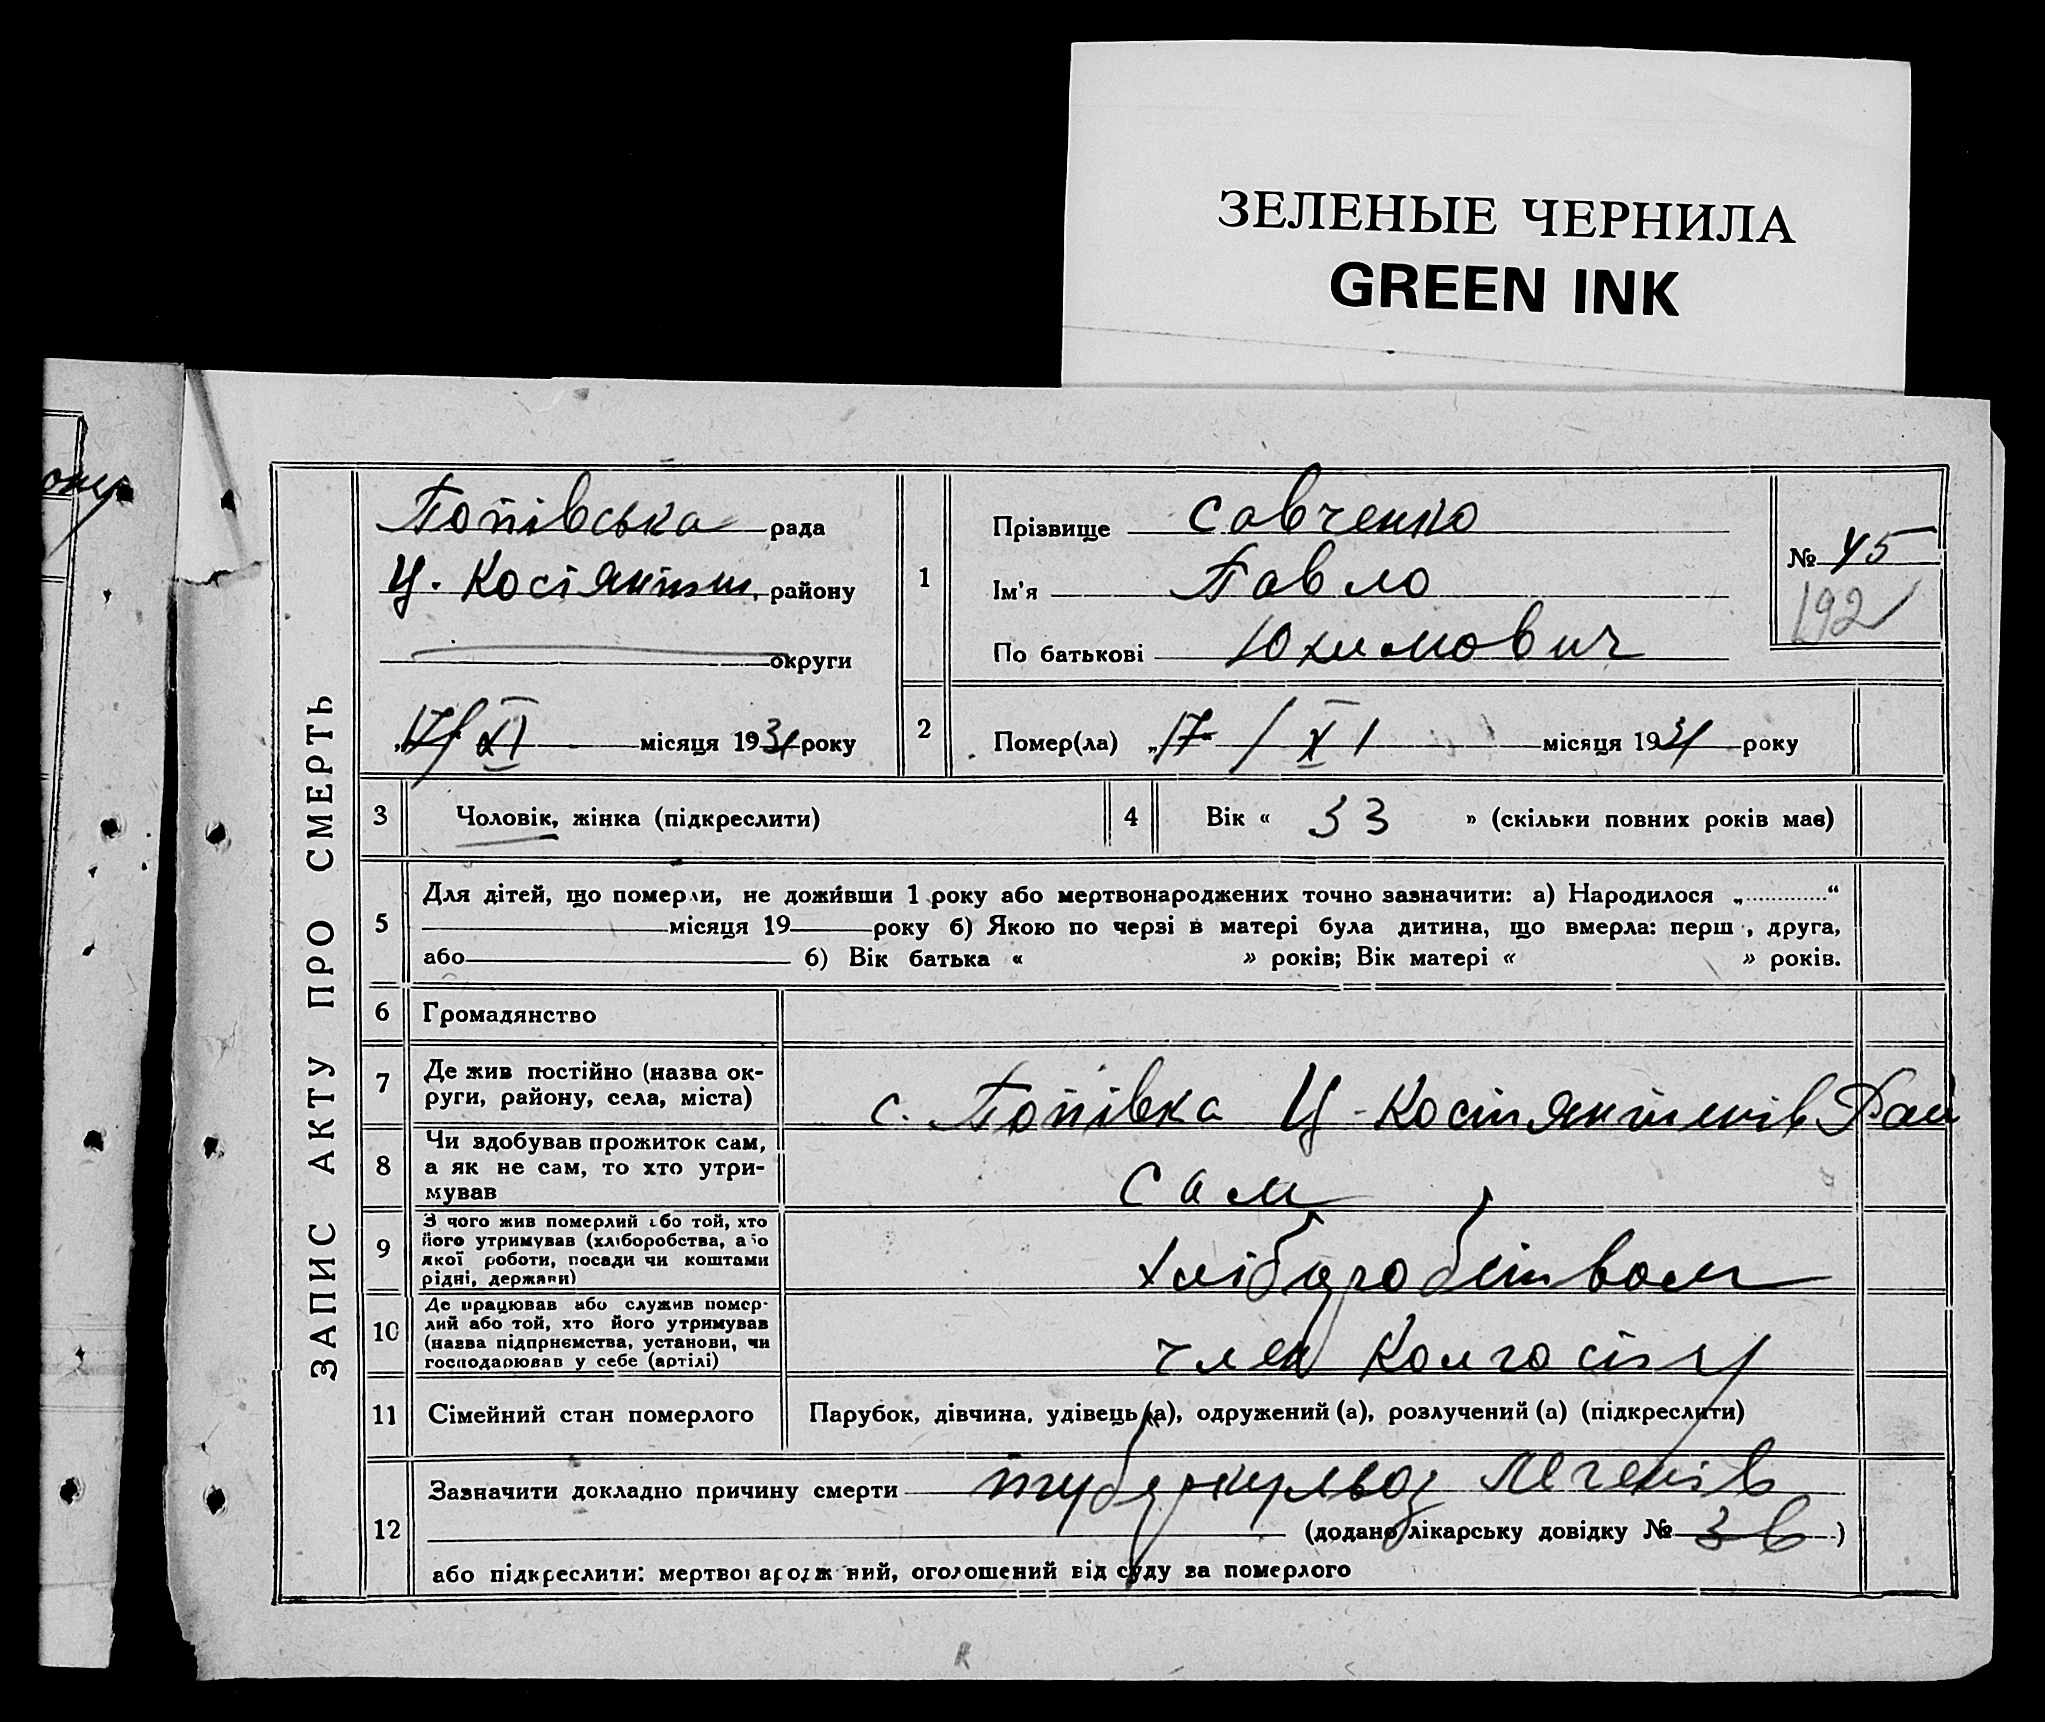 ЗЕЛЕНЫЕ ЧЕРНИЛА
GREEN INK
ЗАПИС АКТУ ПРО СМЕРТЬ
Попівська рада
округи
17/XI місяця 1931 року
1
Прізвище Савченко
Ім'я Павло
По батькові Юхимович
№ 45
192
2
Помер(ла) „17“ / XI місяця 1931 року
3 Чоловік, жінка (підкреслити)
4 Вік « 33 » (скільки повних років має)
5 Для дітей, що померли, не доживши 1 року або мертвонароджених точно зазначити: а) Народилося „............“
місяця 19 року б) Якою по черзі в матері була дитина, що вмерла: перш , друга,
або б) Вік батька « » років; Вік матері « » років.
6 Громадянство
7 Де жив постійно (назва ок-
руги, району, села, міста)
с. Попівка Ц-Костянтинів Рай
8 Чи здобував прожиток сам,
а як не сам, то хто утри-
мував
Сам
9 З чого жив померлий або той, хто
його утримував (хліборобства, або
якої роботи, посади чи коштами
рідні, держави)
хліборобством
10 Де працював або служив помер-
лий або той, хто його утримував
(назва підприємства, установи, чи
господарював у себе (артілі)
член колгоспу
11 Сімейний стан померлого
Парубок, дівчина, удівець (а), одружений (а), розлучений (а) (підкреслити)
12 Зазначити докладно причину смерти туберкульоз легенів
(додано лікарську довідку № )
або підкреслити: мертвонароджений, оголошений від суду за померлого